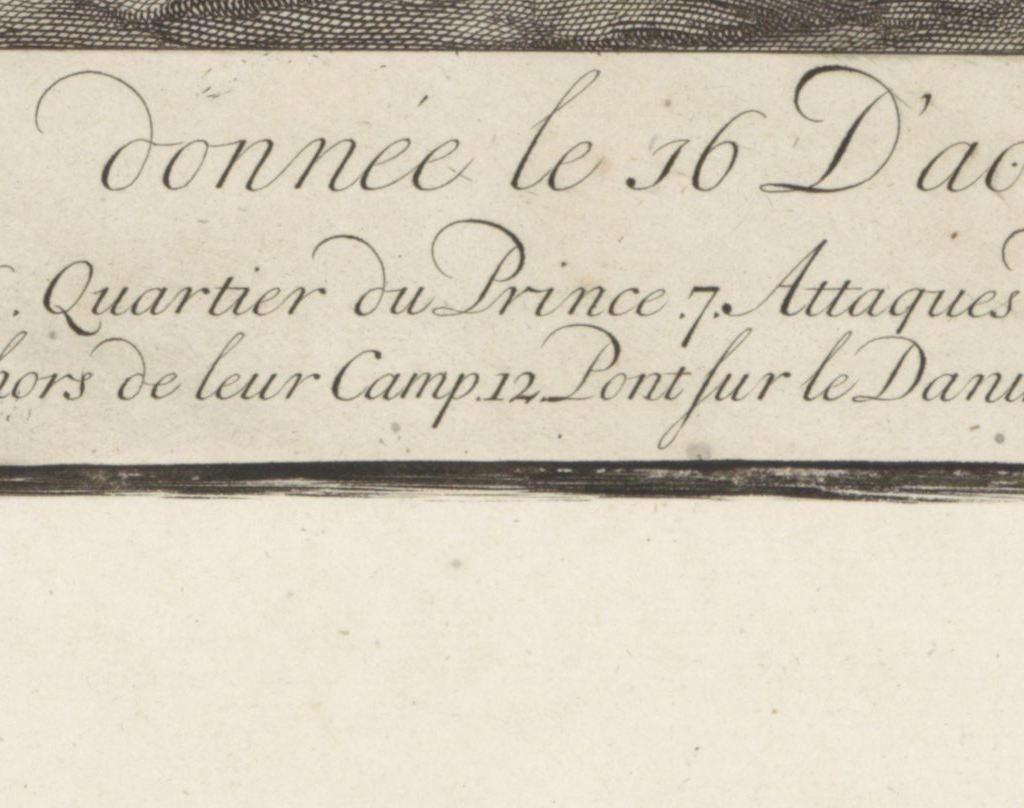 donnée le 16 D'ao
. Quartier du Prince . 7. Attaques
hors de leur Camp. 12 Pont sur le Danu